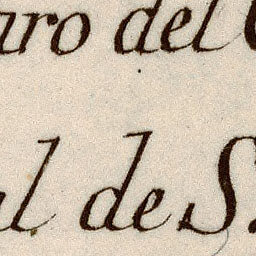 aro del
al de S.